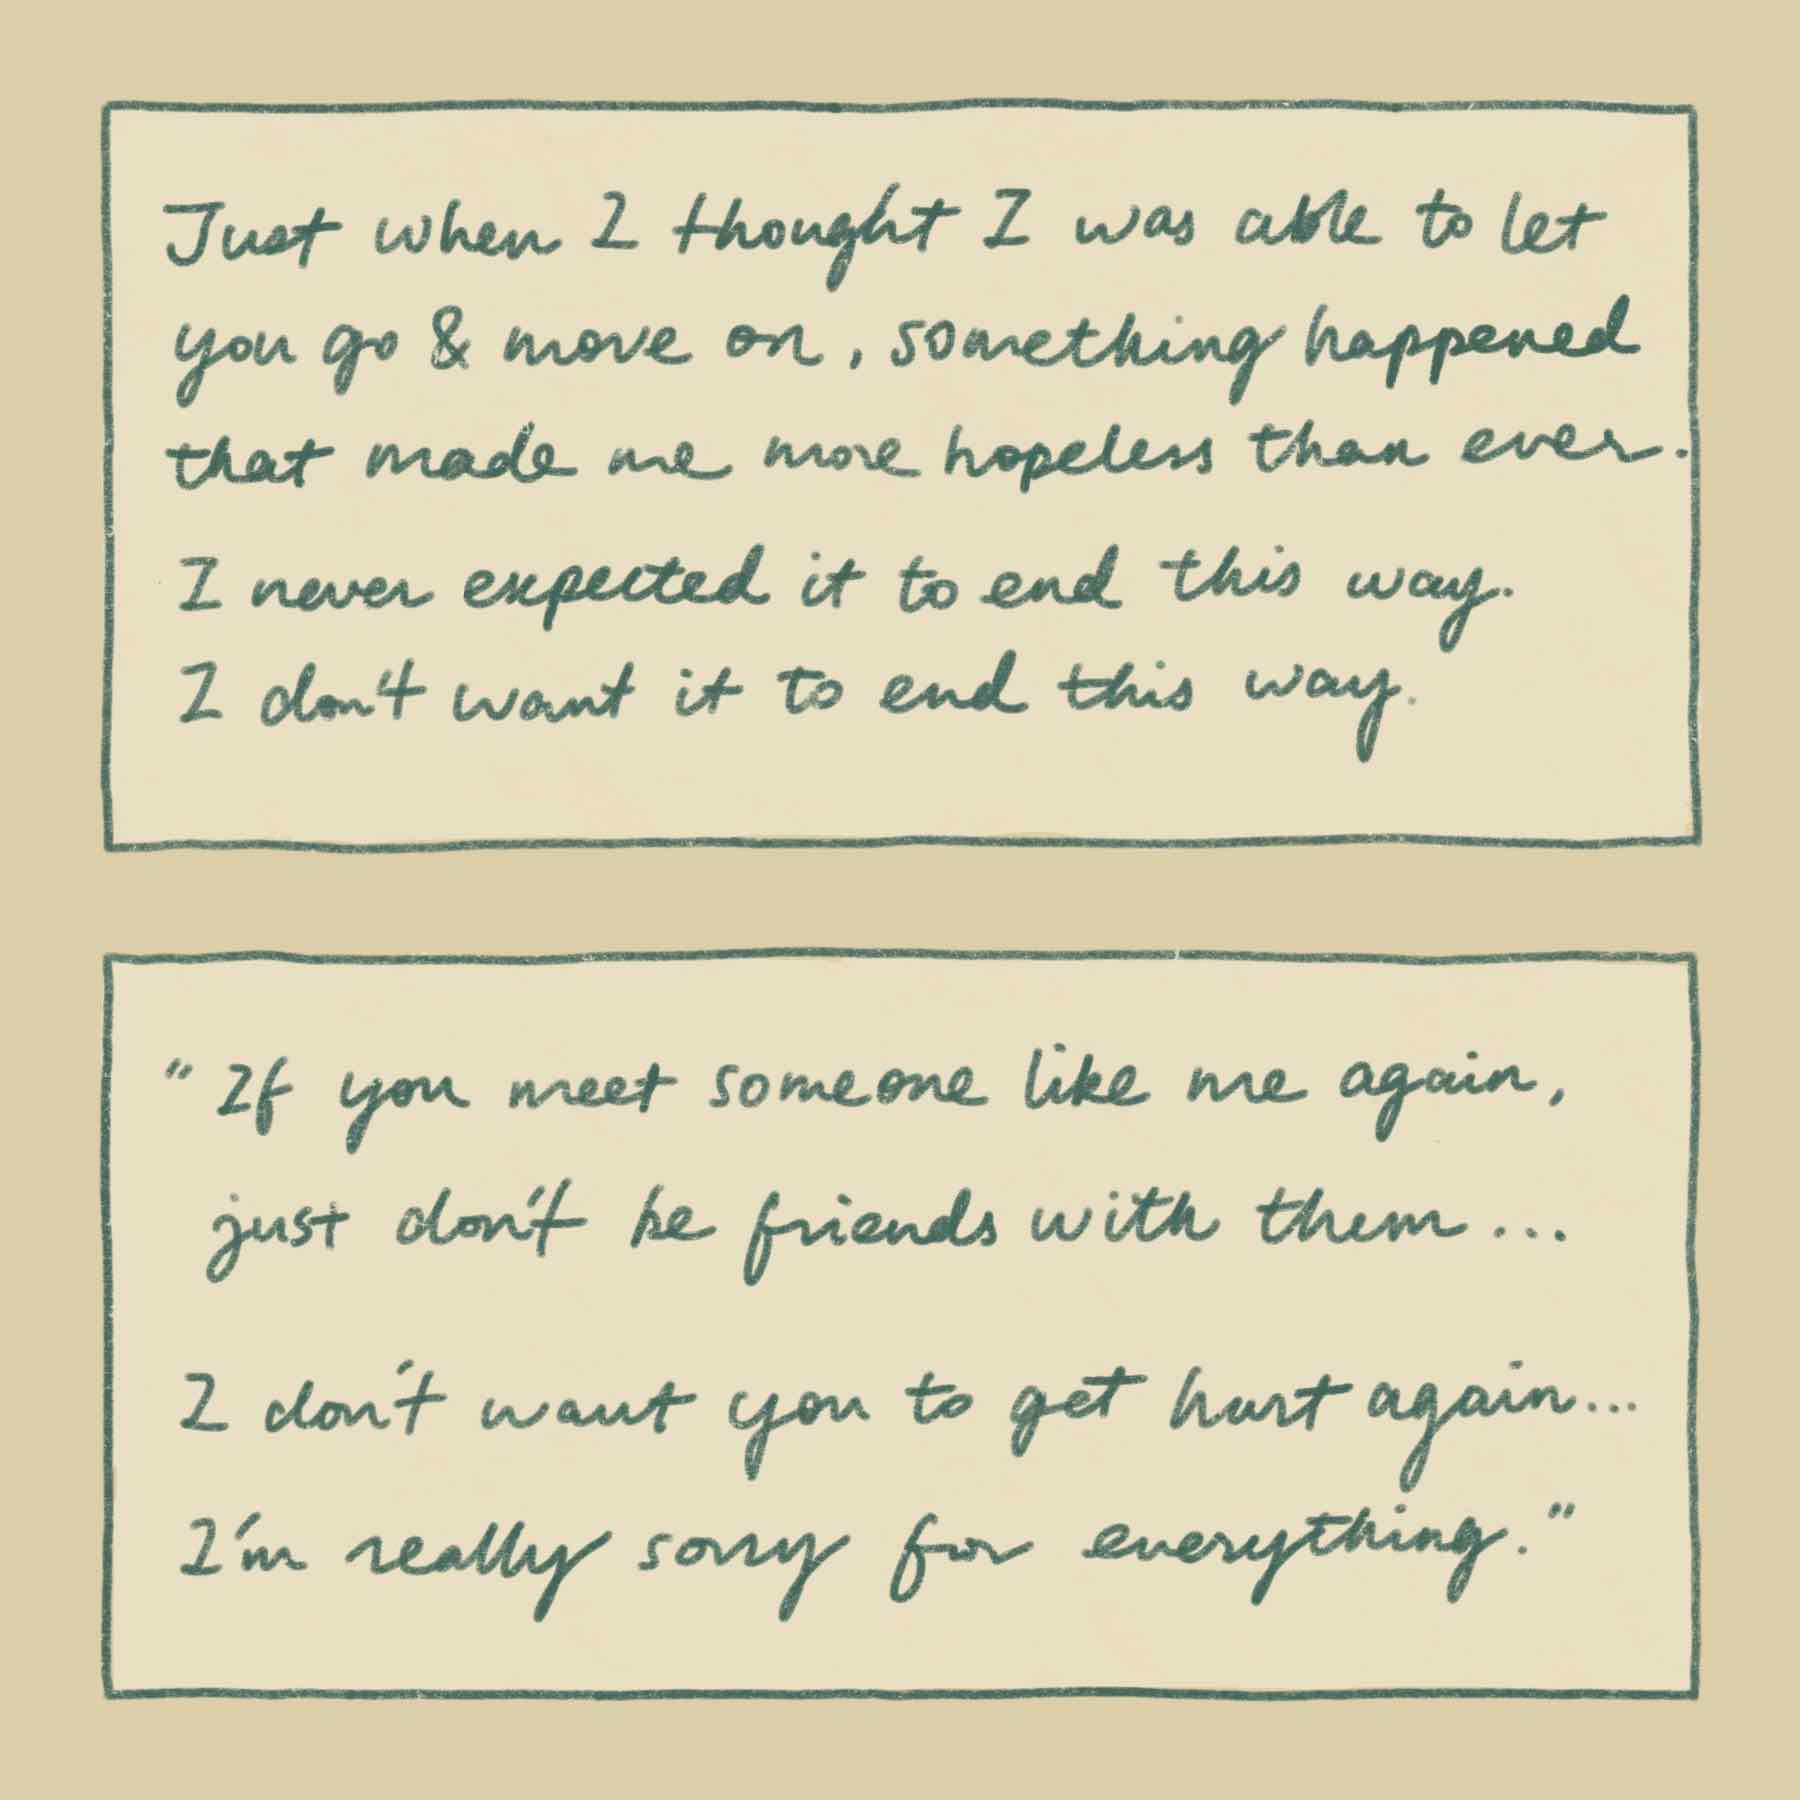 Just when I thought I was able to let
you go & move on, something happened
that made me more hopeless than ever.
I never expected it to end this way.
I don't want it to end this way.
"If you meet someone like me again,
just don't be friends with them...
I don't want you to get hurt again...
I'm really sorry for everything."